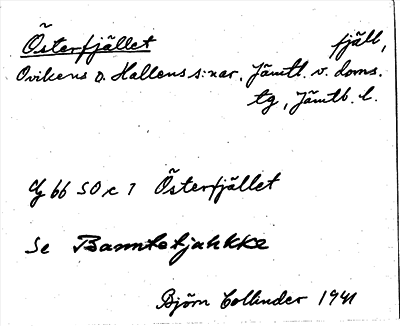 Österfjället fjäll,
Ovikens o. Hallens s:nar, Jämtl. v. doms.
tg, Jämtl. l.
66 SO c 7 Österfjället
Se
Björn Collinder 1941